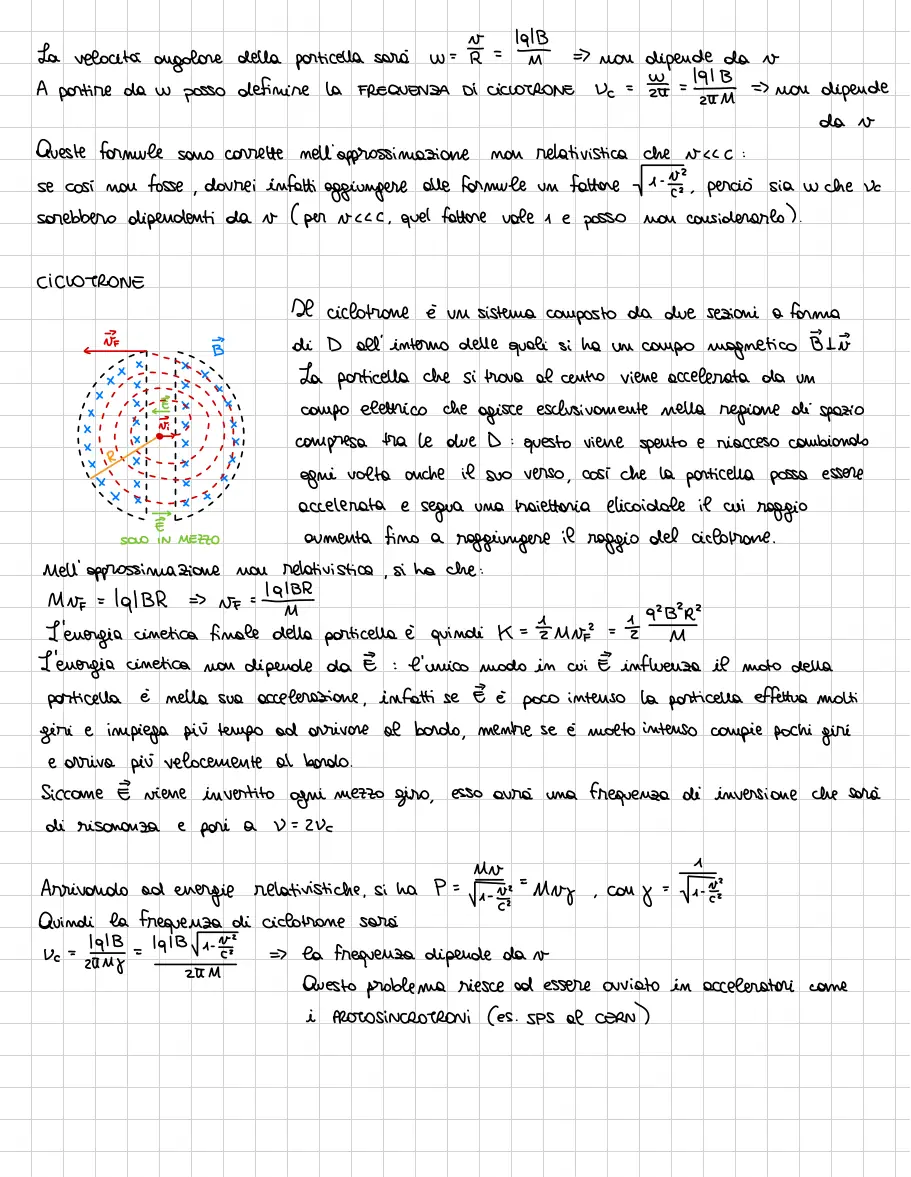 La velocità angolare della particella sarà ω = v/R = |q|B/M => non dipende da v
A partire da ω posso definire la FREQUENZA DI CICLOTRONE ν_c = ω/2π = |q|B/2πM => non dipende
da v
Queste formule sono corrette nell'approssimazione non relativistica che v<<c :
se così non fosse, dovrei infatti aggiungere alle formule un fattore √(1-v²/c²), perciò sia ω che ν_c
sarebbero dipendenti da v (per v<<c, quel fattore vale 1 e posso non considerarlo).
CICLOTRONE
Il ciclotrone è un sistema composto da due sezioni a forma
di D all'interno delle quali si ha un campo magnetico B⃗⊥v⃗
La particella che si trova al centro viene accelerata da un
campo elettrico che agisce esclusivamente nella regione di spazio
compresa tra le due D : questo viene spento e riacceso cambiando
ogni volta anche il suo verso, così che la particella possa essere
accelerata e segua una traiettoria elicoidale il cui raggio
aumenta fino a raggiungere il raggio del ciclotrone.
v⃗_F
B⃗
E⃗
v⃗ᵢ
R
E⃗
SOLO IN MEZZO
Nell'approssimazione non relativistica, si ha che:
Mv_F = |q|BR => v_F = |q|BR/M
L'energia cinetica finale della particella è quindi K = 1/2 Mv_F² = 1/2 q²B²R²/M
L'energia cinetica non dipende da E⃗ : l'unico modo in cui E⃗ influenza il moto della
particella è nella sua accelerazione, infatti se E⃗ è poco intenso la particella effettua molti
giri e impiega più tempo ad arrivare al bordo, mentre se è molto intenso compie pochi giri
e arriva più velocemente al bordo.
Siccome E⃗ viene invertito ogni mezzo giro, esso avrà una frequenza di inversione che sarà
di risonanza e pari a ν = 2ν_c
Arrivando ad energie relativistiche, si ha P = Mv/√(1-v²/c²) = Mvγ , con γ = 1/√(1-v²/c²)
Quindi la frequenza di ciclotrone sarà
ν_c = |q|B/2πMγ = |q|B√(1-v²/c²)/2πM => la frequenza dipende da v
Questo problema riesce ad essere ovviato in acceleratori come
i PROTOSINCROTRONI (es. SPS al CERN)